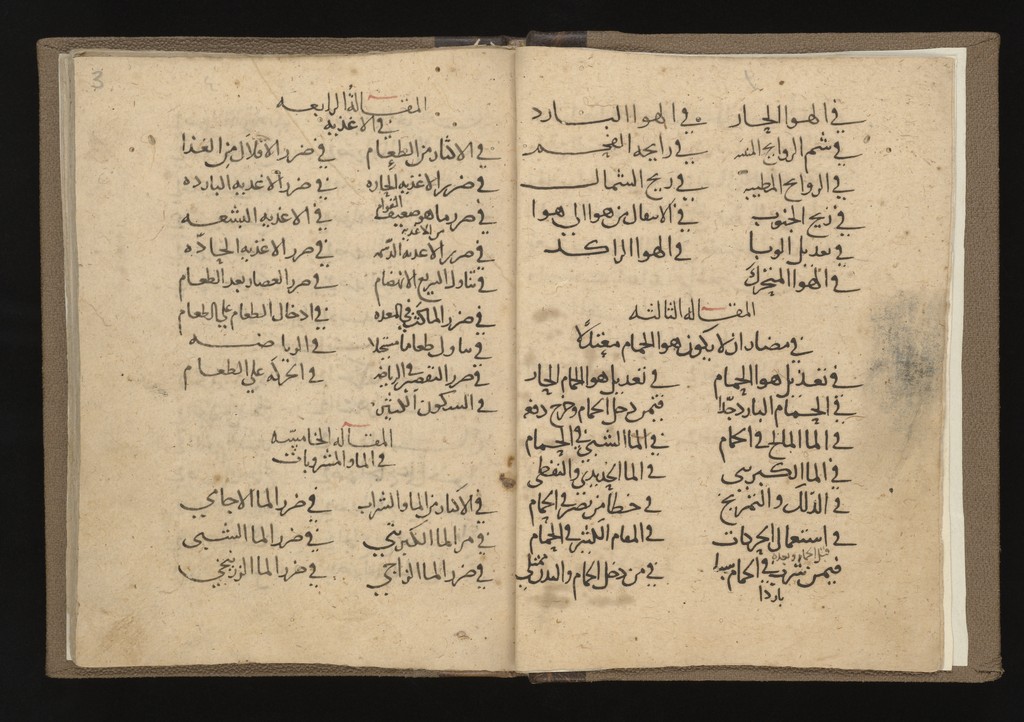 في الهوا الحار في الهوا البارد
في شم الروايح في رايحه الفحم
في الروايح الطيبة في ريح الشمال
في ريح الجنوب في الانتقال من هوا الى هوا
في تعديل الوبا في الهوا الراكد
في الهوا المتحرك
المقاله الثالثه
في مضار ان لا يكون هوا الحمام معتدلًا
في تعديل هوا الحمام في تعديل هوا الحمام الحار
في الحمام البارد جدًا فيمن دخل الحمام وخرج دفعه
في الما المالح في الحمام في الما الشبي في الحمام
في الما الكبريتي في الما الحديدي والنفطي
في الدلك والتمريخ في خطا من في الحمام
في استعمال في المقام الكثير في الحمام
قبل الحمام وبعده
فيمن شرب في الحمام مبردا في من دخل الحمام والبدن ممتلى
باردا
3
المقالة الرابعه
في الاغذيه
في الاكثار من الطعام في ضرر الاقلال من الغذا
في ضرر الاغذيه الحاره في ضرر الاغذيه البارده
في ضرر ما هو ضعيف القوام في الاغذيه البشعه
من الاغذيه
في ضرر الاغذيه الدسمه في ضرر الاغذيه الحادّه
في تناول السريع الانهضام في ضرر بعد الطعام
في ضرر الماكث في المعده في ادخال الطعام على الطعام
في تناول طعاما في الرياضه
في ضرر التقصير في الرياضه في الحركه على الطعام
في السكون الكثير
المقاله الخامسه
في الما والمشروبات
في الاكثار من الما والشراب في ضرر الما الاجامي
في ضرر الما الكبريتي في ضرر الما الشبي
في ضرر الما الزاجي في ضرر الما الزرنيخي